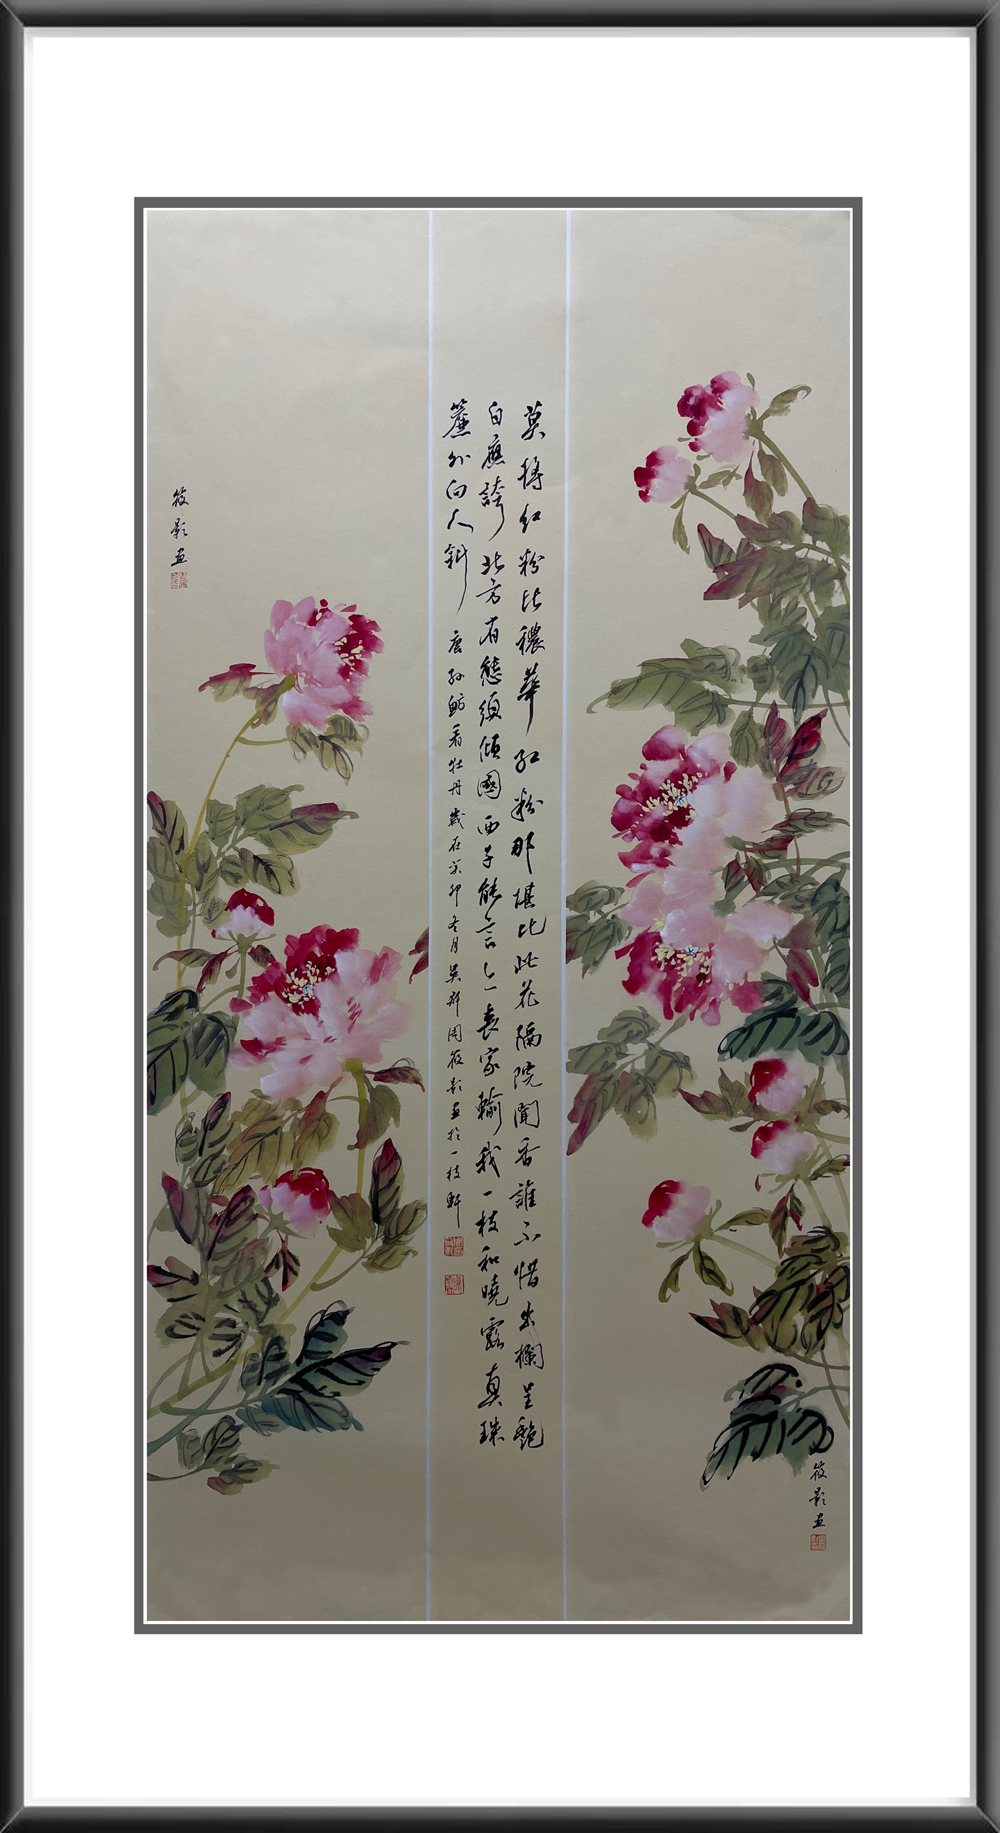 莫將紅粉比穠華紅粉那堪比此花隔院聞香誰不惜出欄呈艷
自應誇北方有態須傾國西子能言亦喪家輸我一枝和曉露真珠
簾外向人斜 唐孫魴看牡丹歲在癸卯冬月吳郡周筱影画於一枝軒
筱影画
筱影画